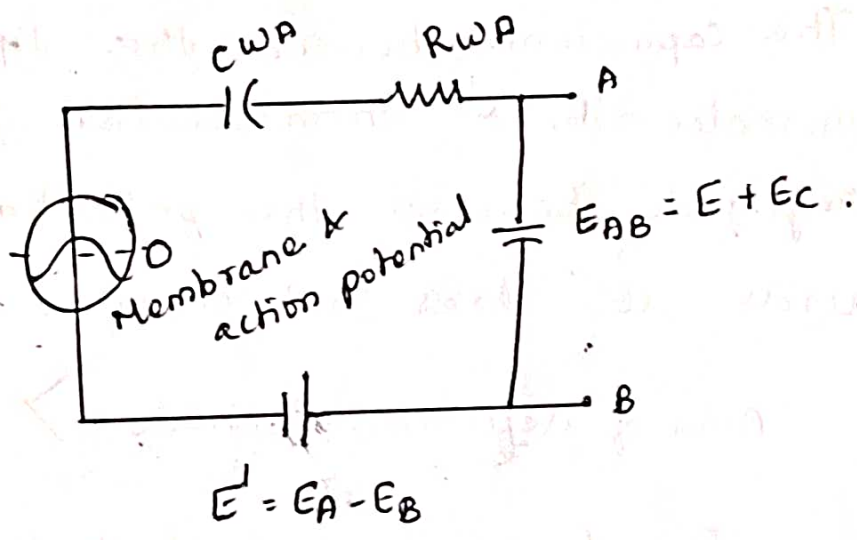 CWA
RWA
A
Membrane &
action potential
EAB = E + EC.
B
E' = EA - EB